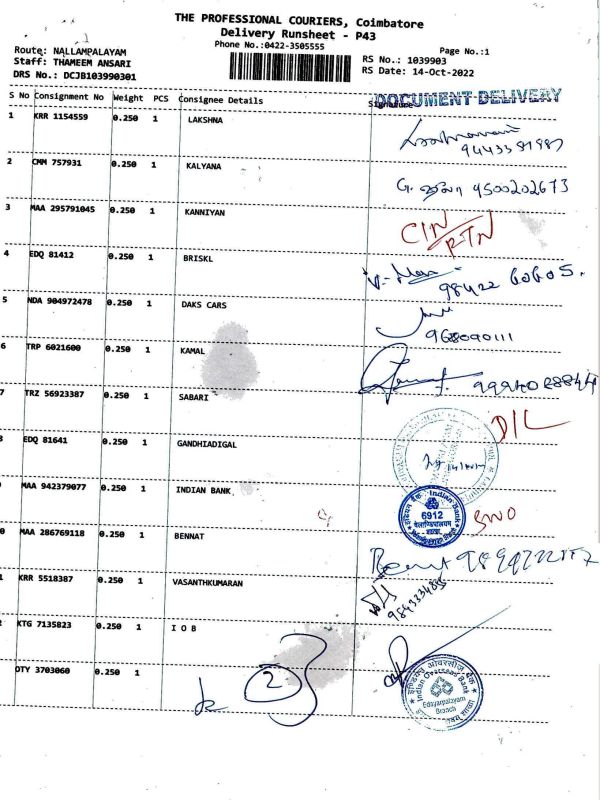 THE PROFESSIONAL COURIERS, Coimbatore
Delivery Runsheet - P43
Phone No.:0422-3505555
Page No.:1
Route: NALLAMPALAYAM
RS No.: 1039903
Staff: THAMEEM ANSARI
RS Date: 14-Oct-2022
DRS No.: DCJB103990301
S No Consignment No Weight PCS Consignee Details Signature
DOCUMENT DELIVERY
1 KRR 1154559 0.250 1 LAKSHNA
2 CMM 757931 0.250 1 KALYANA
9500202673
3 MAA 295791045 0.250 1 KANNIYAN
RTN
4 EDQ 81412 0.250 1 BRISKL
98422 60605.
5 NDA 904972478 0.250 1 DAKS CARS
968090111
6 TRP 6021600 0.250 1 KAMAL
7 TRZ 56923387 0.250 1 SABARI
D/L
EDQ 81641 0.250 1 GANDHIADIGAL
MAA 942379077 0.250 1 INDIAN BANK
Indian Bank
6912
MAA 286769118 0.250 1 BENNAT
KRR 5518387 0.250 1 VASANTHKUMARAN
KTG 7135823 0.250 1 I O B
OTY 3703060 0.250 1
2
इण्डियन ओवरसीज़ बैंक
Indian Overseas Bank
Edayarpalayam
Branch